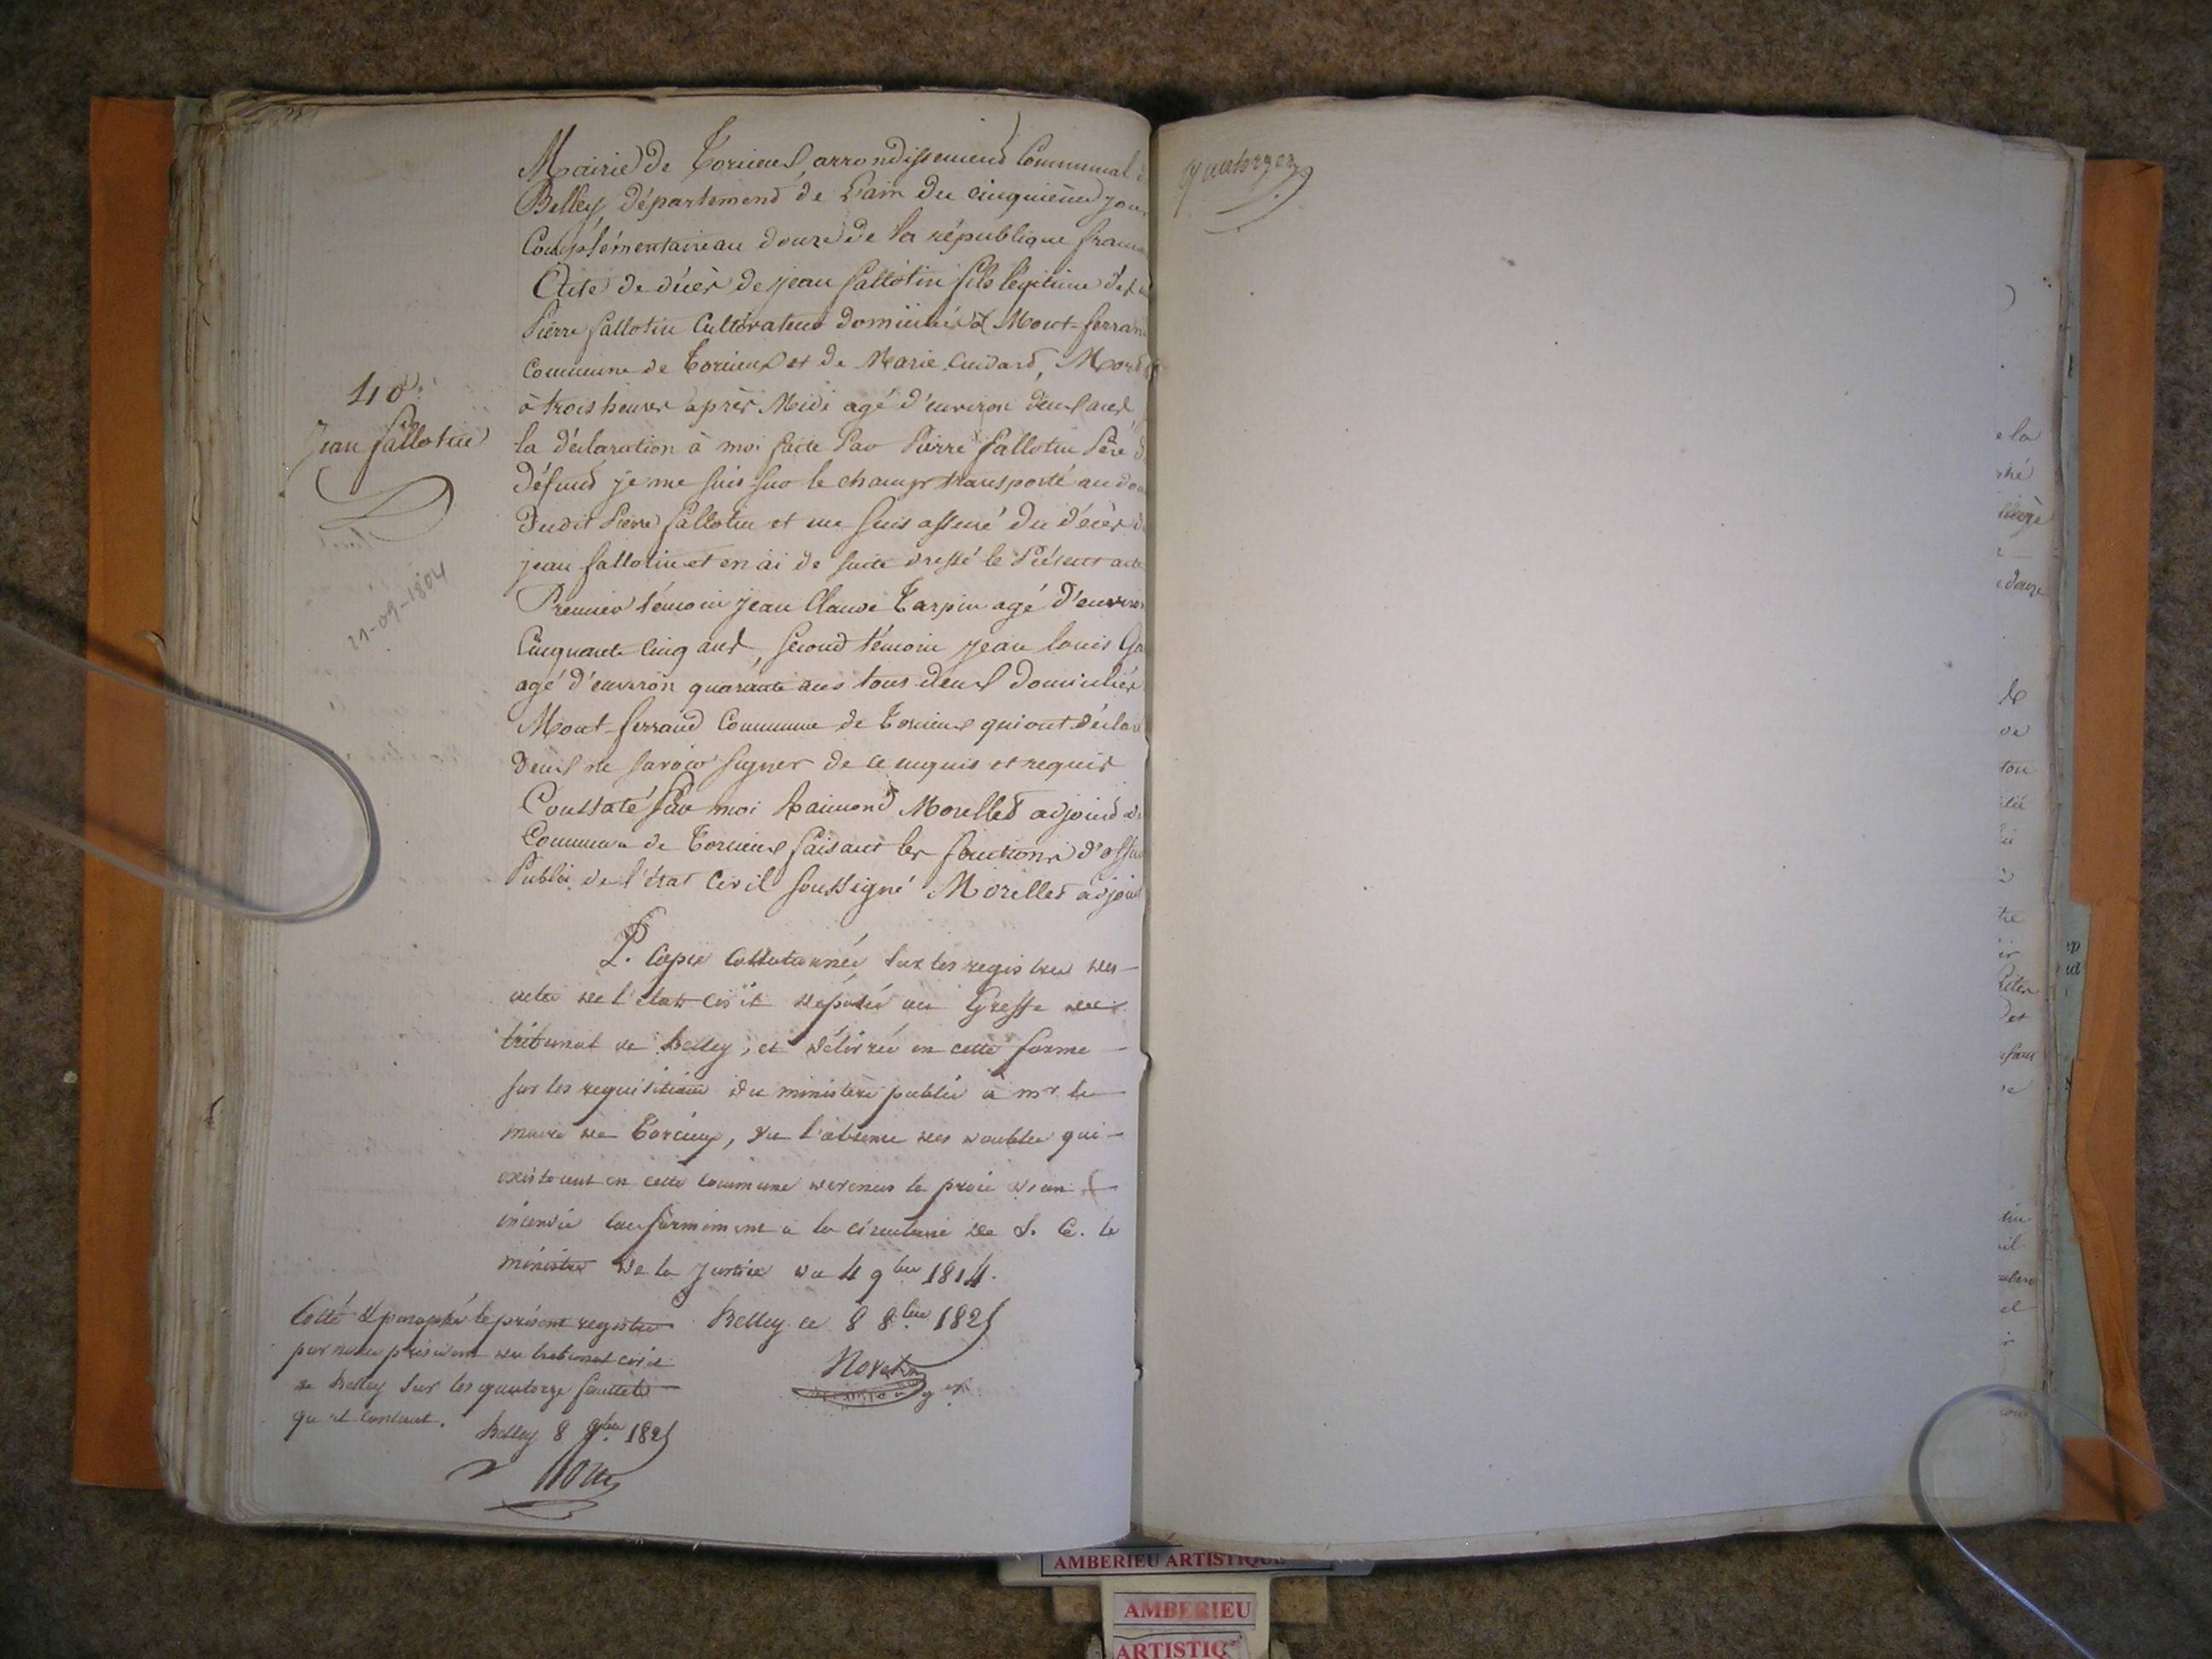 Mairie de Torcieux, arrondissement Communal
Belley, département de L'ain Du cinquième jour
Complémentaire an douze de la république
Acte de décès de jean fallotin fils légitime de
Pierre fallotin Cultivateur domicilié à Mont-ferrand
Commune de Torcieux et de Marie Guidard, Mort
à trois heures après Midi agé d'environ deux ans,
la déclaration à moi faite Par Pierre fallotin Père
Défunt je me suis sur le champ transporté au
Dudit Pierre fallotin et me suis assuré Du décès
jean fallotin et en ai de suite dressé le Présent acte
Premier témoin jean Claude Tarpin agé d'environ
Cinquante Cinq ans, second témoin jean louis
agé d'environ quarante ans tous deux Domiciliés
Mont-ferrand Commune de Torcieux qui ont
deux ne savoir signer de ce enquis et requis
Constaté Par moi Raimond Morellet adjoint
Commune de Torcieux faisant les fonctions
Public de l'état Civil soussigné Morellet adjoint
40e.
Jean fallotin
21-09-1804
P. Copie Collationnée sur les registres des
actes de l'état civil déposés au Greffe du
tribunal de Belley, et délivrée en cette forme
sur les requisitions du ministère public à mr le
maire de Torcieux, vu l'absence des doubles qui
existaient en cette Commune devenus la proie d'un
incendie Conformément à la circulaire de S. E. le
ministre de la Justice du 4 9bre 1814.
Belley ce 8 8bre 1825
Cotté & paraphé le présent registre
par nous président du tribunal civil
de Belley sur les quatorze feuillets
qu'il contient.
Belley 8 9bre 1825
quatorze
la
douze
ton
tre
et
AMBERIEU ARTISTIQUE
AMBERIEU
ARTISTIQ